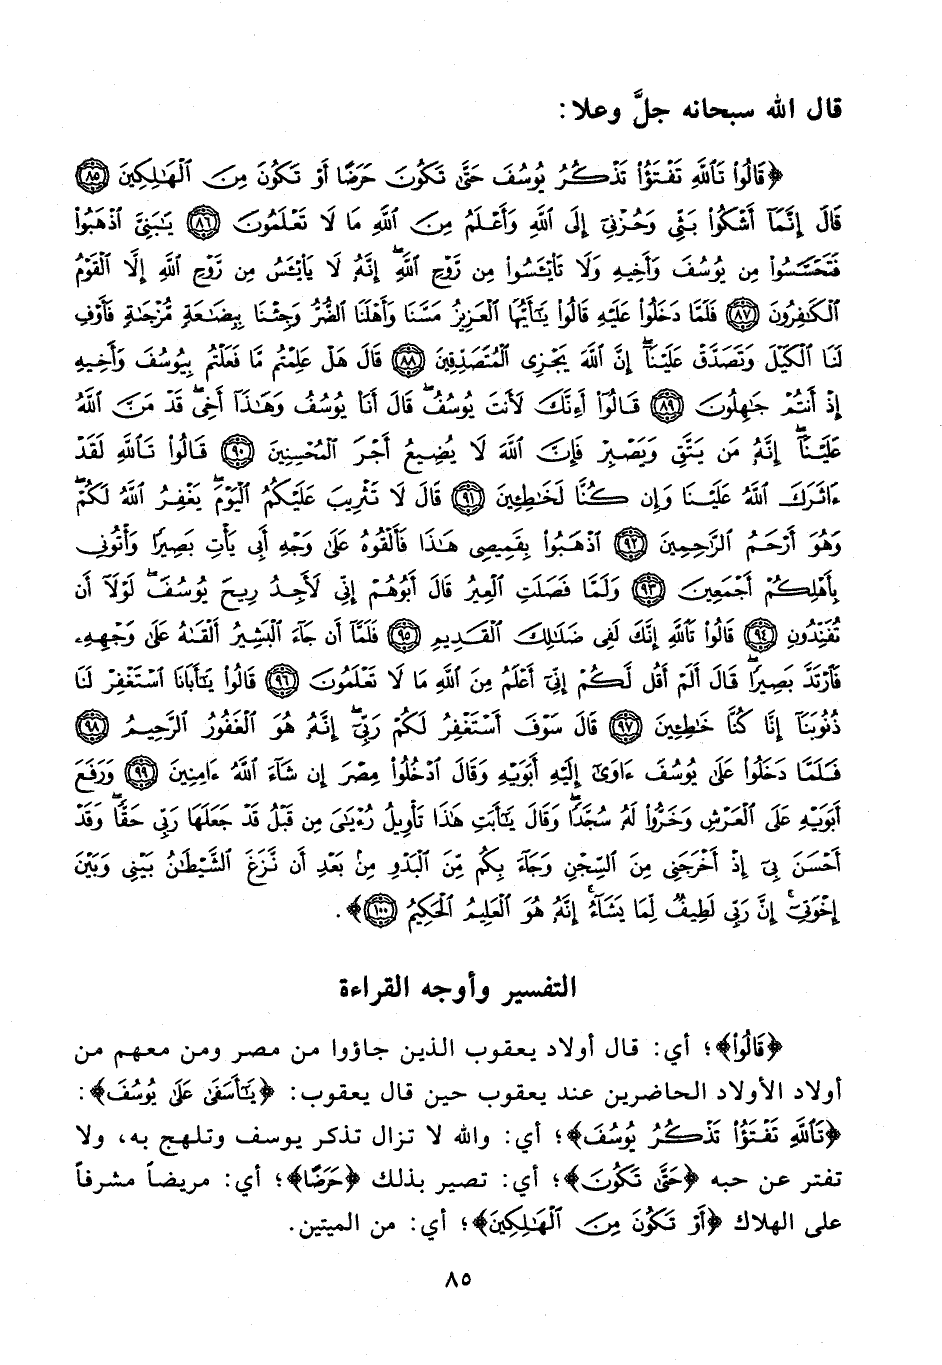 قال الله سبحانه جلَّ وعلا:
﴿قَالُوا۟ تَٱللَّهِ تَفْتَؤُا۟ تَذْكُرُ يُوسُفَ حَتَّىٰ تَكُونَ حَرَضًا أَوْ تَكُونَ مِنَ ٱلْهَٰلِكِينَ ٨٥
قَالَ إِنَّمَآ أَشْكُوا۟ بَثِّى وَحُزْنِىٓ إِلَى ٱللَّهِ وَأَعْلَمُ مِنَ ٱللَّهِ مَا لَا تَعْلَمُونَ ٨٦ يَٰبَنِىَّ ٱذْهَبُوا۟
فَتَحَسَّسُوا۟ مِن يُوسُفَ وَأَخِيهِ وَلَا تَا۟يْـَٔسُوا۟ مِن رَّوْحِ ٱللَّهِ ۖ إِنَّهُۥ لَا يَا۟يْـَٔسُ مِن رَّوْحِ ٱللَّهِ إِلَّا ٱلْقَوْمُ
ٱلْكَٰفِرُونَ ٨٧ فَلَمَّا دَخَلُوا۟ عَلَيْهِ قَالُوا۟ يَٰٓأَيُّهَا ٱلْعَزِيزُ مَسَّنَا وَأَهْلَنَا ٱلضُّرُّ وَجِئْنَا بِبِضَٰعَةٍ مُّزْجَىٰةٍ فَأَوْفِ
لَنَا ٱلْكَيْلَ وَتَصَدَّقْ عَلَيْنَآ ۖ إِنَّ ٱللَّهَ يَجْزِى ٱلْمُتَصَدِّقِينَ ٨٨ قَالَ هَلْ عَلِمْتُم مَّا فَعَلْتُم بِيُوسُفَ وَأَخِيهِ
إِذْ أَنتُمْ جَٰهِلُونَ ٨٩ قَالُوٓا۟ أَءِنَّكَ لَأَنتَ يُوسُفُ ۖ قَالَ أَنَا۠ يُوسُفُ وَهَٰذَآ أَخِى ۖ قَدْ مَنَّ ٱللَّهُ
عَلَيْنَآ ۖ إِنَّهُۥ مَن يَتَّقِ وَيَصْبِرْ فَإِنَّ ٱللَّهَ لَا يُضِيعُ أَجْرَ ٱلْمُحْسِنِينَ ٩٠ قَالُوا۟ تَٱللَّهِ لَقَدْ
ءَاثَرَكَ ٱللَّهُ عَلَيْنَا وَإِن كُنَّا لَخَٰطِـِٔينَ ٩١ قَالَ لَا تَثْرِيبَ عَلَيْكُمُ ٱلْيَوْمَ ۖ يَغْفِرُ ٱللَّهُ لَكُمْ ۖ
وَهُوَ أَرْحَمُ ٱلرَّٰحِمِينَ ٩٢ ٱذْهَبُوا۟ بِقَمِيصِى هَٰذَا فَأَلْقُوهُ عَلَىٰ وَجْهِ أَبِى يَأْتِ بَصِيرًا وَأْتُونِى
بِأَهْلِكُمْ أَجْمَعِينَ ٩٣ وَلَمَّا فَصَلَتِ ٱلْعِيرُ قَالَ أَبُوهُمْ إِنِّى لَأَجِدُ رِيحَ يُوسُفَ ۖ لَوْلَآ أَن
تُفَنِّدُونِ ٩٤ قَالُوا۟ تَٱللَّهِ إِنَّكَ لَفِى ضَلَٰلِكَ ٱلْقَدِيمِ ٩٥ فَلَمَّآ أَن جَآءَ ٱلْبَشِيرُ أَلْقَىٰهُ عَلَىٰ وَجْهِهِۦ
فَٱرْتَدَّ بَصِيرًا ۖ قَالَ أَلَمْ أَقُل لَّكُمْ إِنِّىٓ أَعْلَمُ مِنَ ٱللَّهِ مَا لَا تَعْلَمُونَ ٩٦ قَالُوا۟ يَٰٓأَبَانَا ٱسْتَغْفِرْ لَنَا
ذُنُوبَنَآ إِنَّا كُنَّا خَٰطِـِٔينَ ٩٧ قَالَ سَوْفَ أَسْتَغْفِرُ لَكُمْ رَبِّىٓ ۖ إِنَّهُۥ هُوَ ٱلْغَفُورُ ٱلرَّحِيمُ ٩٨
فَلَمَّا دَخَلُوا۟ عَلَىٰ يُوسُفَ ءَاوَىٰٓ إِلَيْهِ أَبَوَيْهِ وَقَالَ ٱدْخُلُوا۟ مِصْرَ إِن شَآءَ ٱللَّهُ ءَامِنِينَ ٩٩ وَرَفَعَ
أَبَوَيْهِ عَلَى ٱلْعَرْشِ وَخَرُّوا۟ لَهُۥ سُجَّدًا ۖ وَقَالَ يَٰٓأَبَتِ هَٰذَا تَأْوِيلُ رُءْيَٰىَ مِن قَبْلُ قَدْ جَعَلَهَا رَبِّى حَقًّا ۖ وَقَدْ
أَحْسَنَ بِىٓ إِذْ أَخْرَجَنِى مِنَ ٱلسِّجْنِ وَجَآءَ بِكُم مِّنَ ٱلْبَدْوِ مِنۢ بَعْدِ أَن نَّزَغَ ٱلشَّيْطَٰنُ بَيْنِى وَبَيْنَ
إِخْوَتِىٓ ۚ إِنَّ رَبِّى لَطِيفٌ لِّمَا يَشَآءُ ۚ إِنَّهُۥ هُوَ ٱلْعَلِيمُ ٱلْحَكِيمُ ١٠٠﴾.
التفسير وأوجه القراءة
﴿قَالُوا۟﴾؛ أي: قال أولاد يعقوب الذين جاؤوا من مصر ومن معهم من
أولاد الأولاد الحاضرين عند يعقوب حين قال يعقوب: ﴿يَٰٓأَسَفَىٰ عَلَىٰ يُوسُفَ﴾:
﴿تَٱللَّهِ تَفْتَؤُا۟ تَذْكُرُ يُوسُفَ﴾؛ أي: والله لا تزال تذكر يوسف وتلهج به، ولا
تفتر عن حبه ﴿حَتَّىٰ تَكُونَ﴾؛ أي: تصير بذلك ﴿حَرَضًا﴾؛ أي: مريضاً مشرفاً
على الهلاك ﴿أَوْ تَكُونَ مِنَ ٱلْهَٰلِكِينَ﴾؛ أي: من الميتين.
٨٥